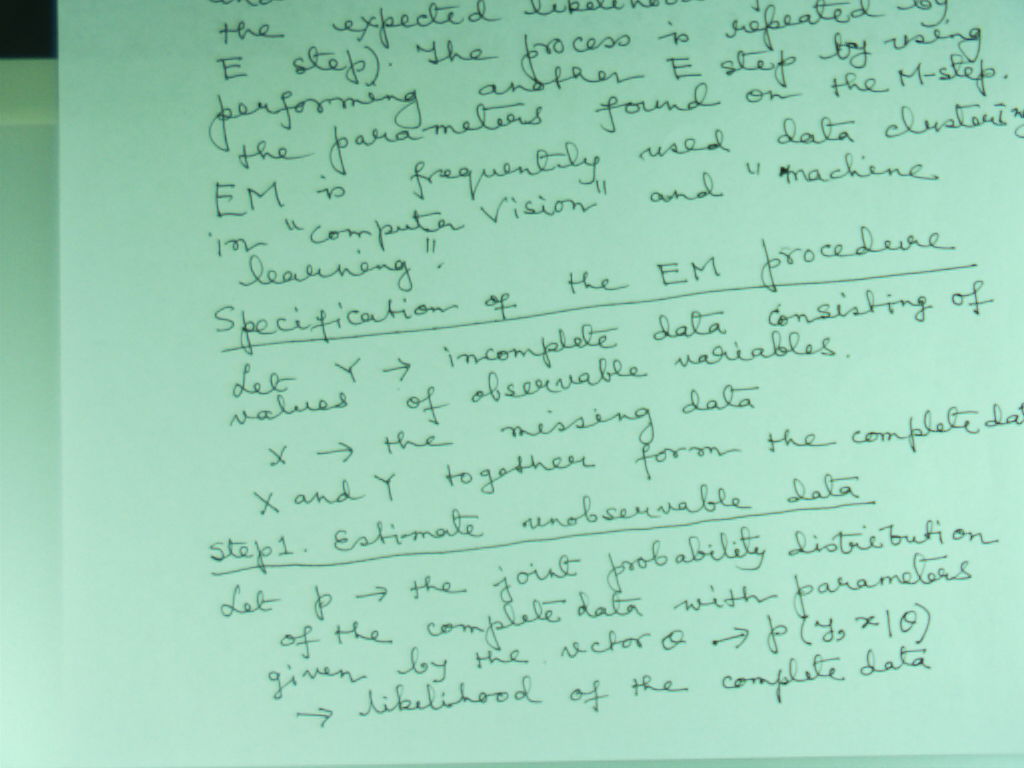 the expected likelihood
E step). The process is repeated by
performing another E step by using
the parameters found on the M-step.
EM is frequently used data clustering
in "Computer Vision" and "machine
learning".
Specification of the EM procedure
Let Y → incomplete data consisting of
values of observable variables.
X → the missing data
X and Y together form the complete dat
Step1. Estimate unobservable data
Let p → the joint probability distribution
of the complete data with parameters
given by the vector θ → p(y, x|θ)
→ likelihood of the complete data